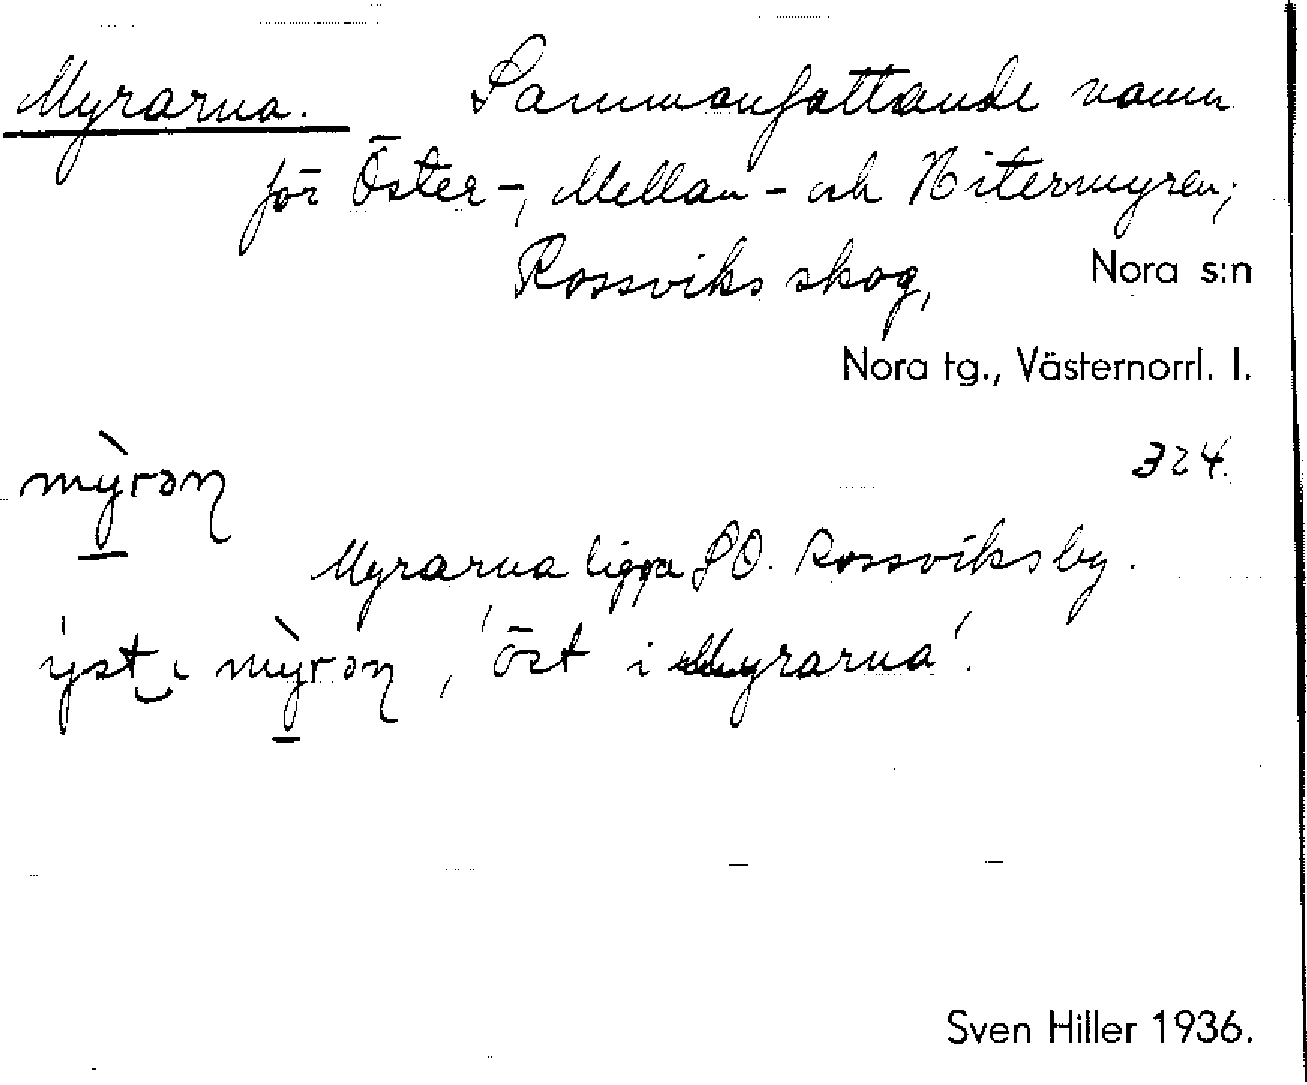 Myrarna. Sammanfattande namn
för Öster-, Mellan- och Yttermyren,
Rossviks skog, Nora s:n
Nora tg., Västernorrl. l.
324.
Myrarna ligga SO. Rossviks by.
'öst i Myrarna'.
Sven Hiller 1936.